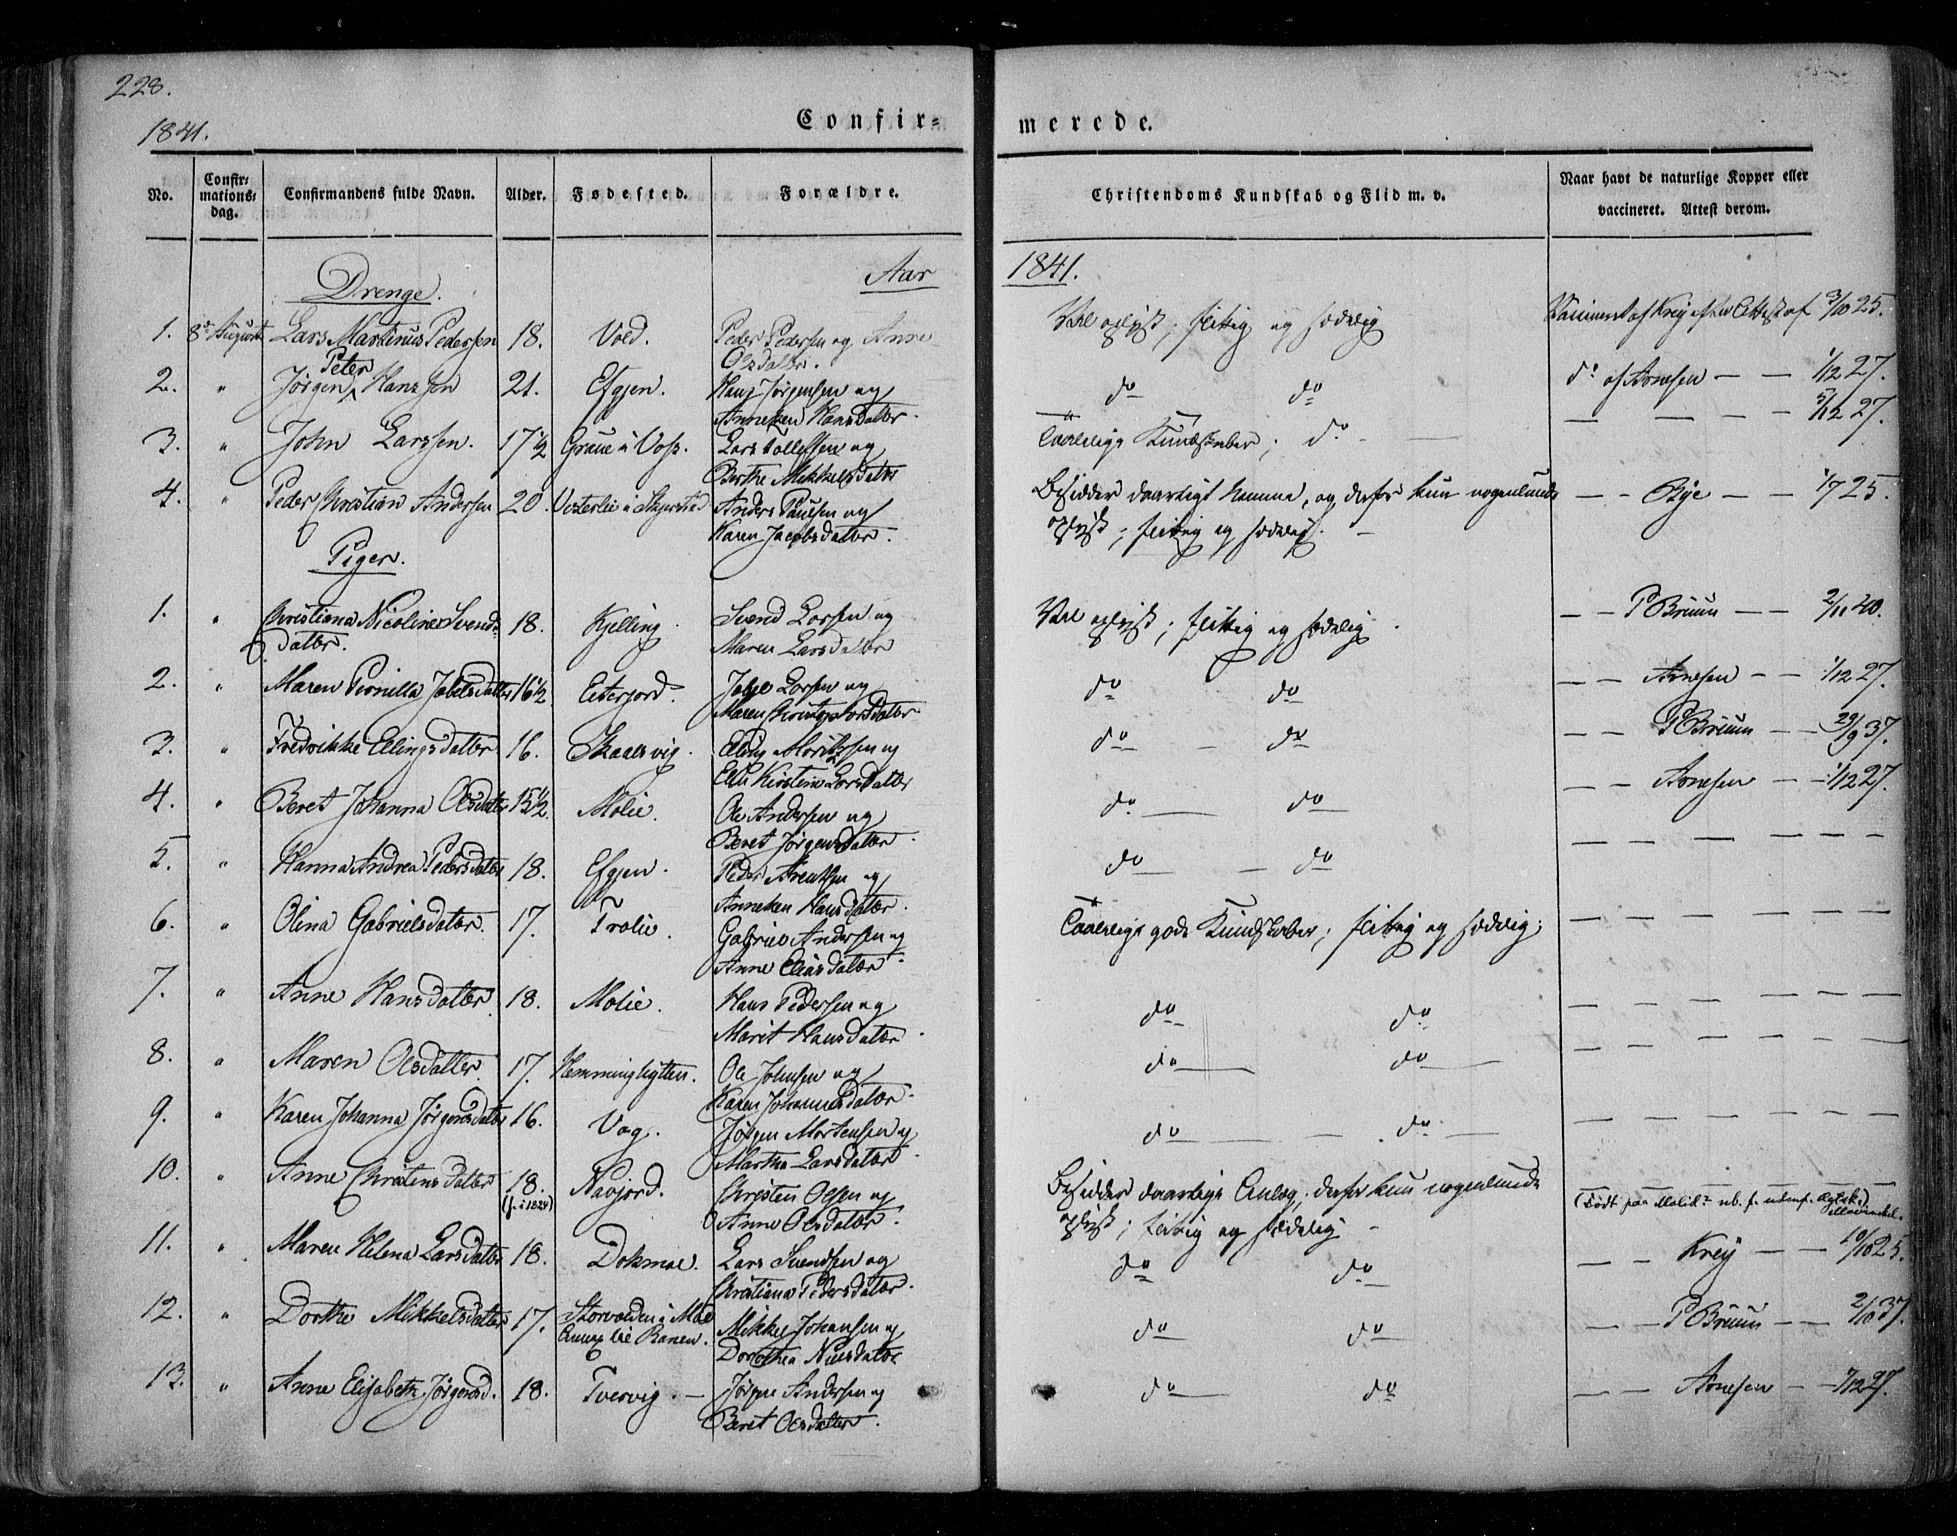 228.
1841.
Confir- merede.
No. Confir-mations-dag. Confirmandens fulde Navn. Alder. Fødested. Forældre. Christendoms Kundskab og Flid m. v. Naar havt de naturlige Kopper eller vaccineret. Attest derom.
Drenge. Aar 1841.
1. 8de August Lars Martinus Pedersen 18. Vold. Peder Pedersen og Anne Vel oplyst; flittig og sædelig Vaccineret af Krey efter Attest af 3/10 25.
Olsdatter.
Peter
2. " Jørgen Hanssen 21. Efjen. Hans Jørgensen og do do do af Arnesen — — 1/12 27.
Anneken Hansdatter.
3. " John Larssen. 17 1/2 Graue i Voss. Lars Tollefsen og Taalelige Kundskaber; do — — — — 5/12 27.
Berthe Mikkelsdatter
4. " Peder Christian Andersen 20. Vesterlie i Skjerstad Anders Paulsen og Besidder daarligt Nemme, og derfor kun nogenlunde — — Rye — — 1/7 25.
Karen Jacobsdatter. oplyst; flittig og sædelig.
Piger.
1. " Christiana Nicoline Svends- 18. Kjelling. Svend Larsen og Vel oplyst; flittig og sædelig. — — P Bruun — — 2/11 40.
datter. Maren Larsdatter
2. " Maren Pernilla Jakelsdatter 16 1/2 Eiterjord. Larsen og do do — — Arnesen — — 1/12 27.
Maren Larsdatter
3. " Fredrikke Ellingsdatter 16. Skaalsvig. Elling Moritzsen og do — do — — P Bruun — — 29/9 37.
Kirstine Larsdatter
4. " Beret Johanna Olsdatter 15 1/2. Molie. Ole Andersen og do — do — — Arnesen — — 1/12 27.
Beret Jørgensdatter.
5. " Hanna Andrea Pedersdatter 18. Efjen. Peder Arentsen og do — do — — — — —
Anneken Hansdatter.
6. " Olina Gabrielsdatter. 17. Trolie. Gabriel Andersen og Taalelige gode Kundskaber; flittig og sædelig; — — — — —
Anne Eliasdatter.
7. " Anne Hansdatter 18. Molie. Hans Pedersen og do do — — — — —
Marit Hansdatter.
8. " Maren Olsdatter. 17. Hemminghytten. Ole Johnsen og do — do — — — — — —
Karen Johannesdatter.
9. " Karen Johanna Jørgensdatter 16. Vag. Jørgen Mortensen og do — — do — — — — — —
Martha Larsdatter.
10. " Anne Christensdatter 18. Navjord. Christen Olsen og Besidder daarlige Anlæg, derfor kun nogenlunde
(f. i 1824) Anne Olsdatter. oplyst; flittig og sædelig
11. " Maren Helena Larsdatter 18. Dokmoe. Lars Svendsen og do do — — Krey — — 10/10 25.
Christiana Pedersdatter.
12. " Dorthe Mikkelsdatter 17. Storvolden i Moe Mikkel Johansen og do do — — P Bruun — — 2/10 37.
Annex til Ranen. Dorothea Nilsdatter
13. " Anne Elisabeth Jørgensd. 18. Tvervig. — Jørgen Andersen og do — do — — Arnesen — 7/12 27.
Beret Olsdatter.